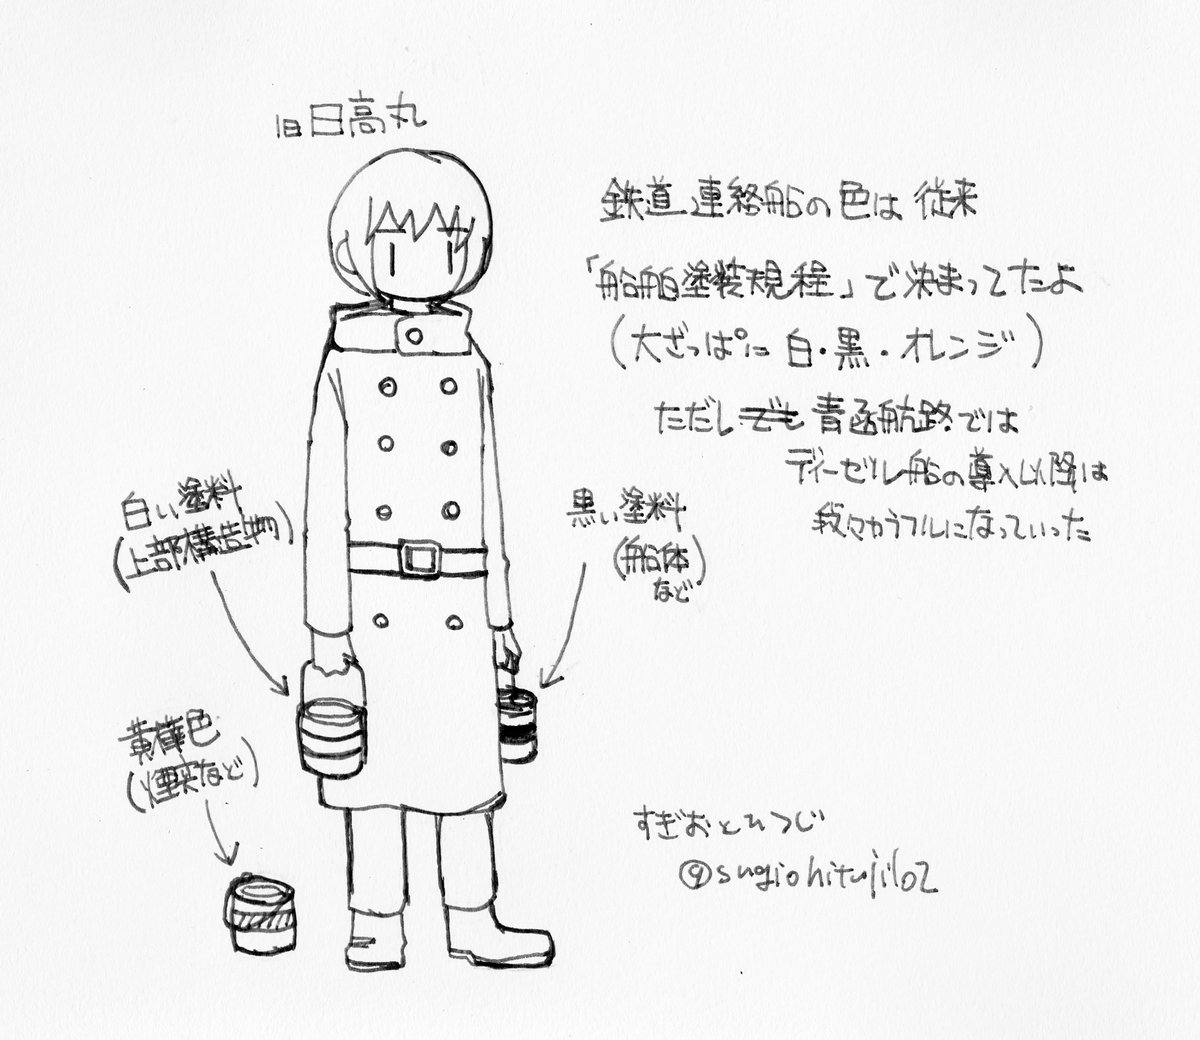 旧日高丸
鉄道連絡船の色は従来
「船舶塗装規程」で決まってたよ
(大ざっぱに 白・黒・オレンジ)
ただし 青函航路では
ディーゼル船の導入以降は
段々カラフルになっていった
白い塗料
(上部構造物)
黒い塗料
(船体
など)
黄樺色
(煙突など)
すぎおとひつじ
@sugiohitujilo2